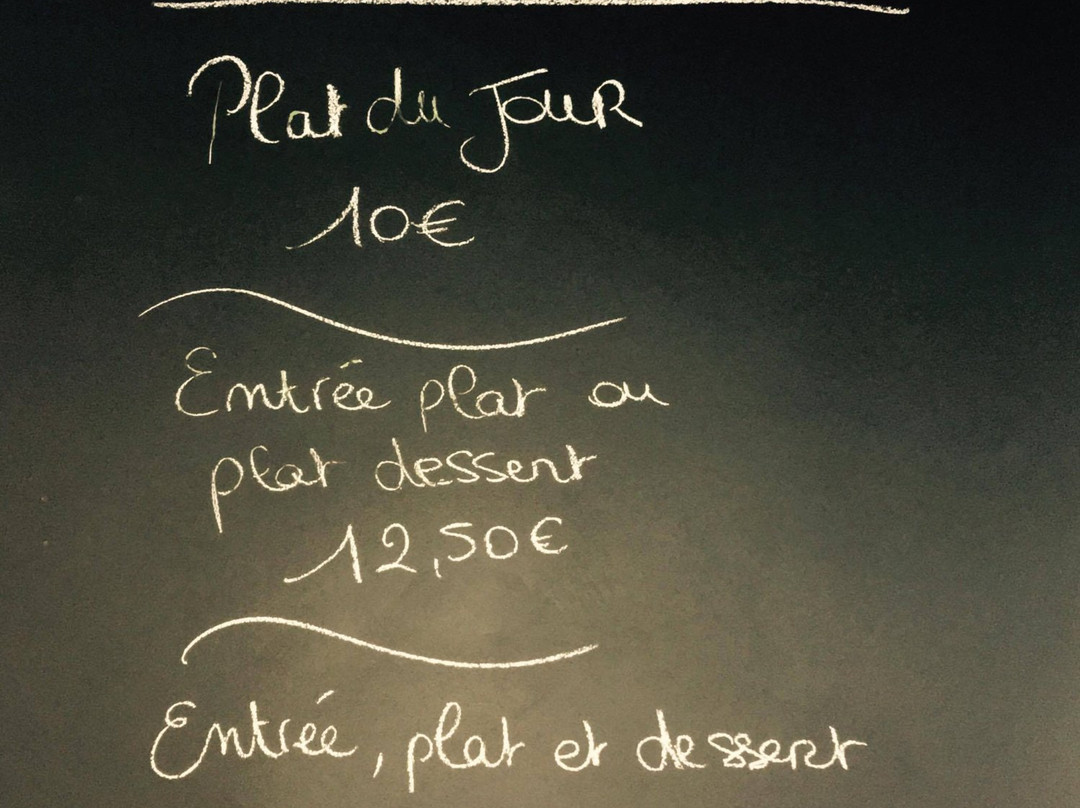 Plat du Jour
10€
Entrée plat ou
plat dessert
12,50€
Entrée, plat et dessert